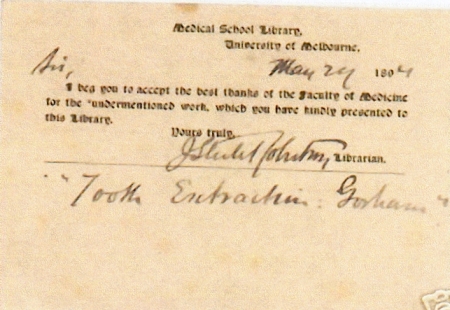 Medical School Library,
University of Melbourne.
Sir, May 24 1894
I beg you to accept the best thanks of the Faculty of Medicine
for the undermentioned work, which you have kindly presented to
this Library.
Yours truly,
Librarian.
"Tooth Extraction: Gorham"